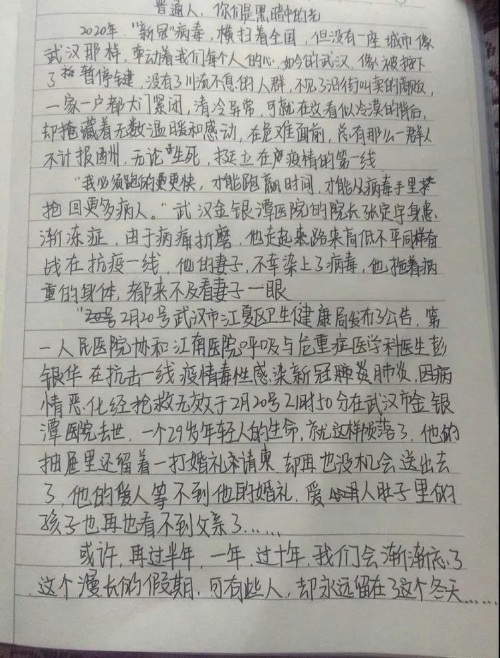 普通人，你们是黑暗中的光
2020年，"新冠"病毒，横扫着全国，但没有一座城市像
武汉那样，牵动着我们每个人的心，如今的武汉，像被按下
了暂停键，没有了川流不息的人群，不见了沿街叫卖的商贩，
一家一户都大门紧闭，清冷异常，可就在这看似冷漠的背后，
却掩藏着无数温暖和感动，在危难面前，总有那么一群人
不计报酬，无论生死，挺立在疫情的第一线
"我必须跑的更更快，才能跑赢时间，才能从病毒手里
抢回更多病人。"武汉金银潭医院的院长张定宇身患
渐冻症，由于病痛折磨，他走起来路来高低不平同样奋
战在抗疫一线，他的妻子，不幸染上了病毒，他拖着病
重的身体，都来不及看妻子一眼
2月20号武汉市江夏区卫生健康局发布了公告，第
一人民医院协和江南医院呼吸与危重症医学科医生彭
银华在抗击一线疫情毒性感染新冠肺炎肺炎，因病
情恶化经抢救无效于2月20号21时50分在武汉市金银
潭医院去世，一个29岁年轻人的生命，就这样陨落了，他的
抽屉里还留着一打婚礼和请柬却再也没机会送出去
了，他的爱人等不到他的婚礼，爱人肚子里的
孩子也再也看不到父亲了……
或许，再过半年，一年，过十年，我们会渐渐忘了
这个漫长的假期，可有些人，却永远留在了这个冬天……